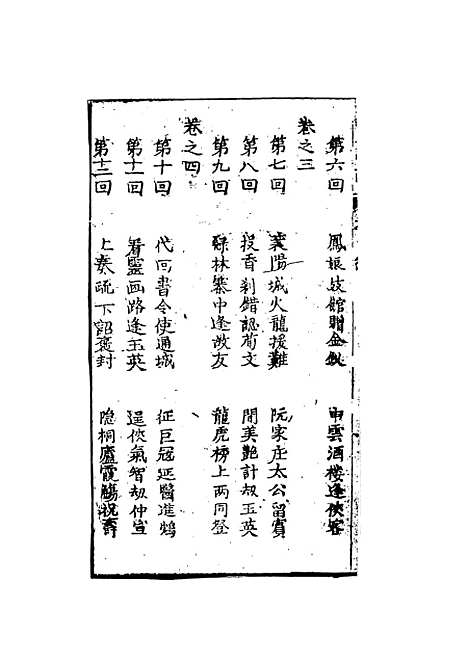 第六回 鳳娘妓館贈金釵 申雲酒樓逢俠客
卷之三
第七回 襄陽城火龍援難 阮家庄太公留賓
第八回 投香刹錯認荀文 聞美艷計刼玉英
第九回 綠林寨中逢故友 龍虎榜上兩同登
卷之四
第十回 代回書令使通城 征巨寇延醫進鴆
第十一回 看靈画路逢玉英 逞俠氣智刼仲宣
第十二回 上奏疏下詔褒封 隐桐廬霞觴祝壽